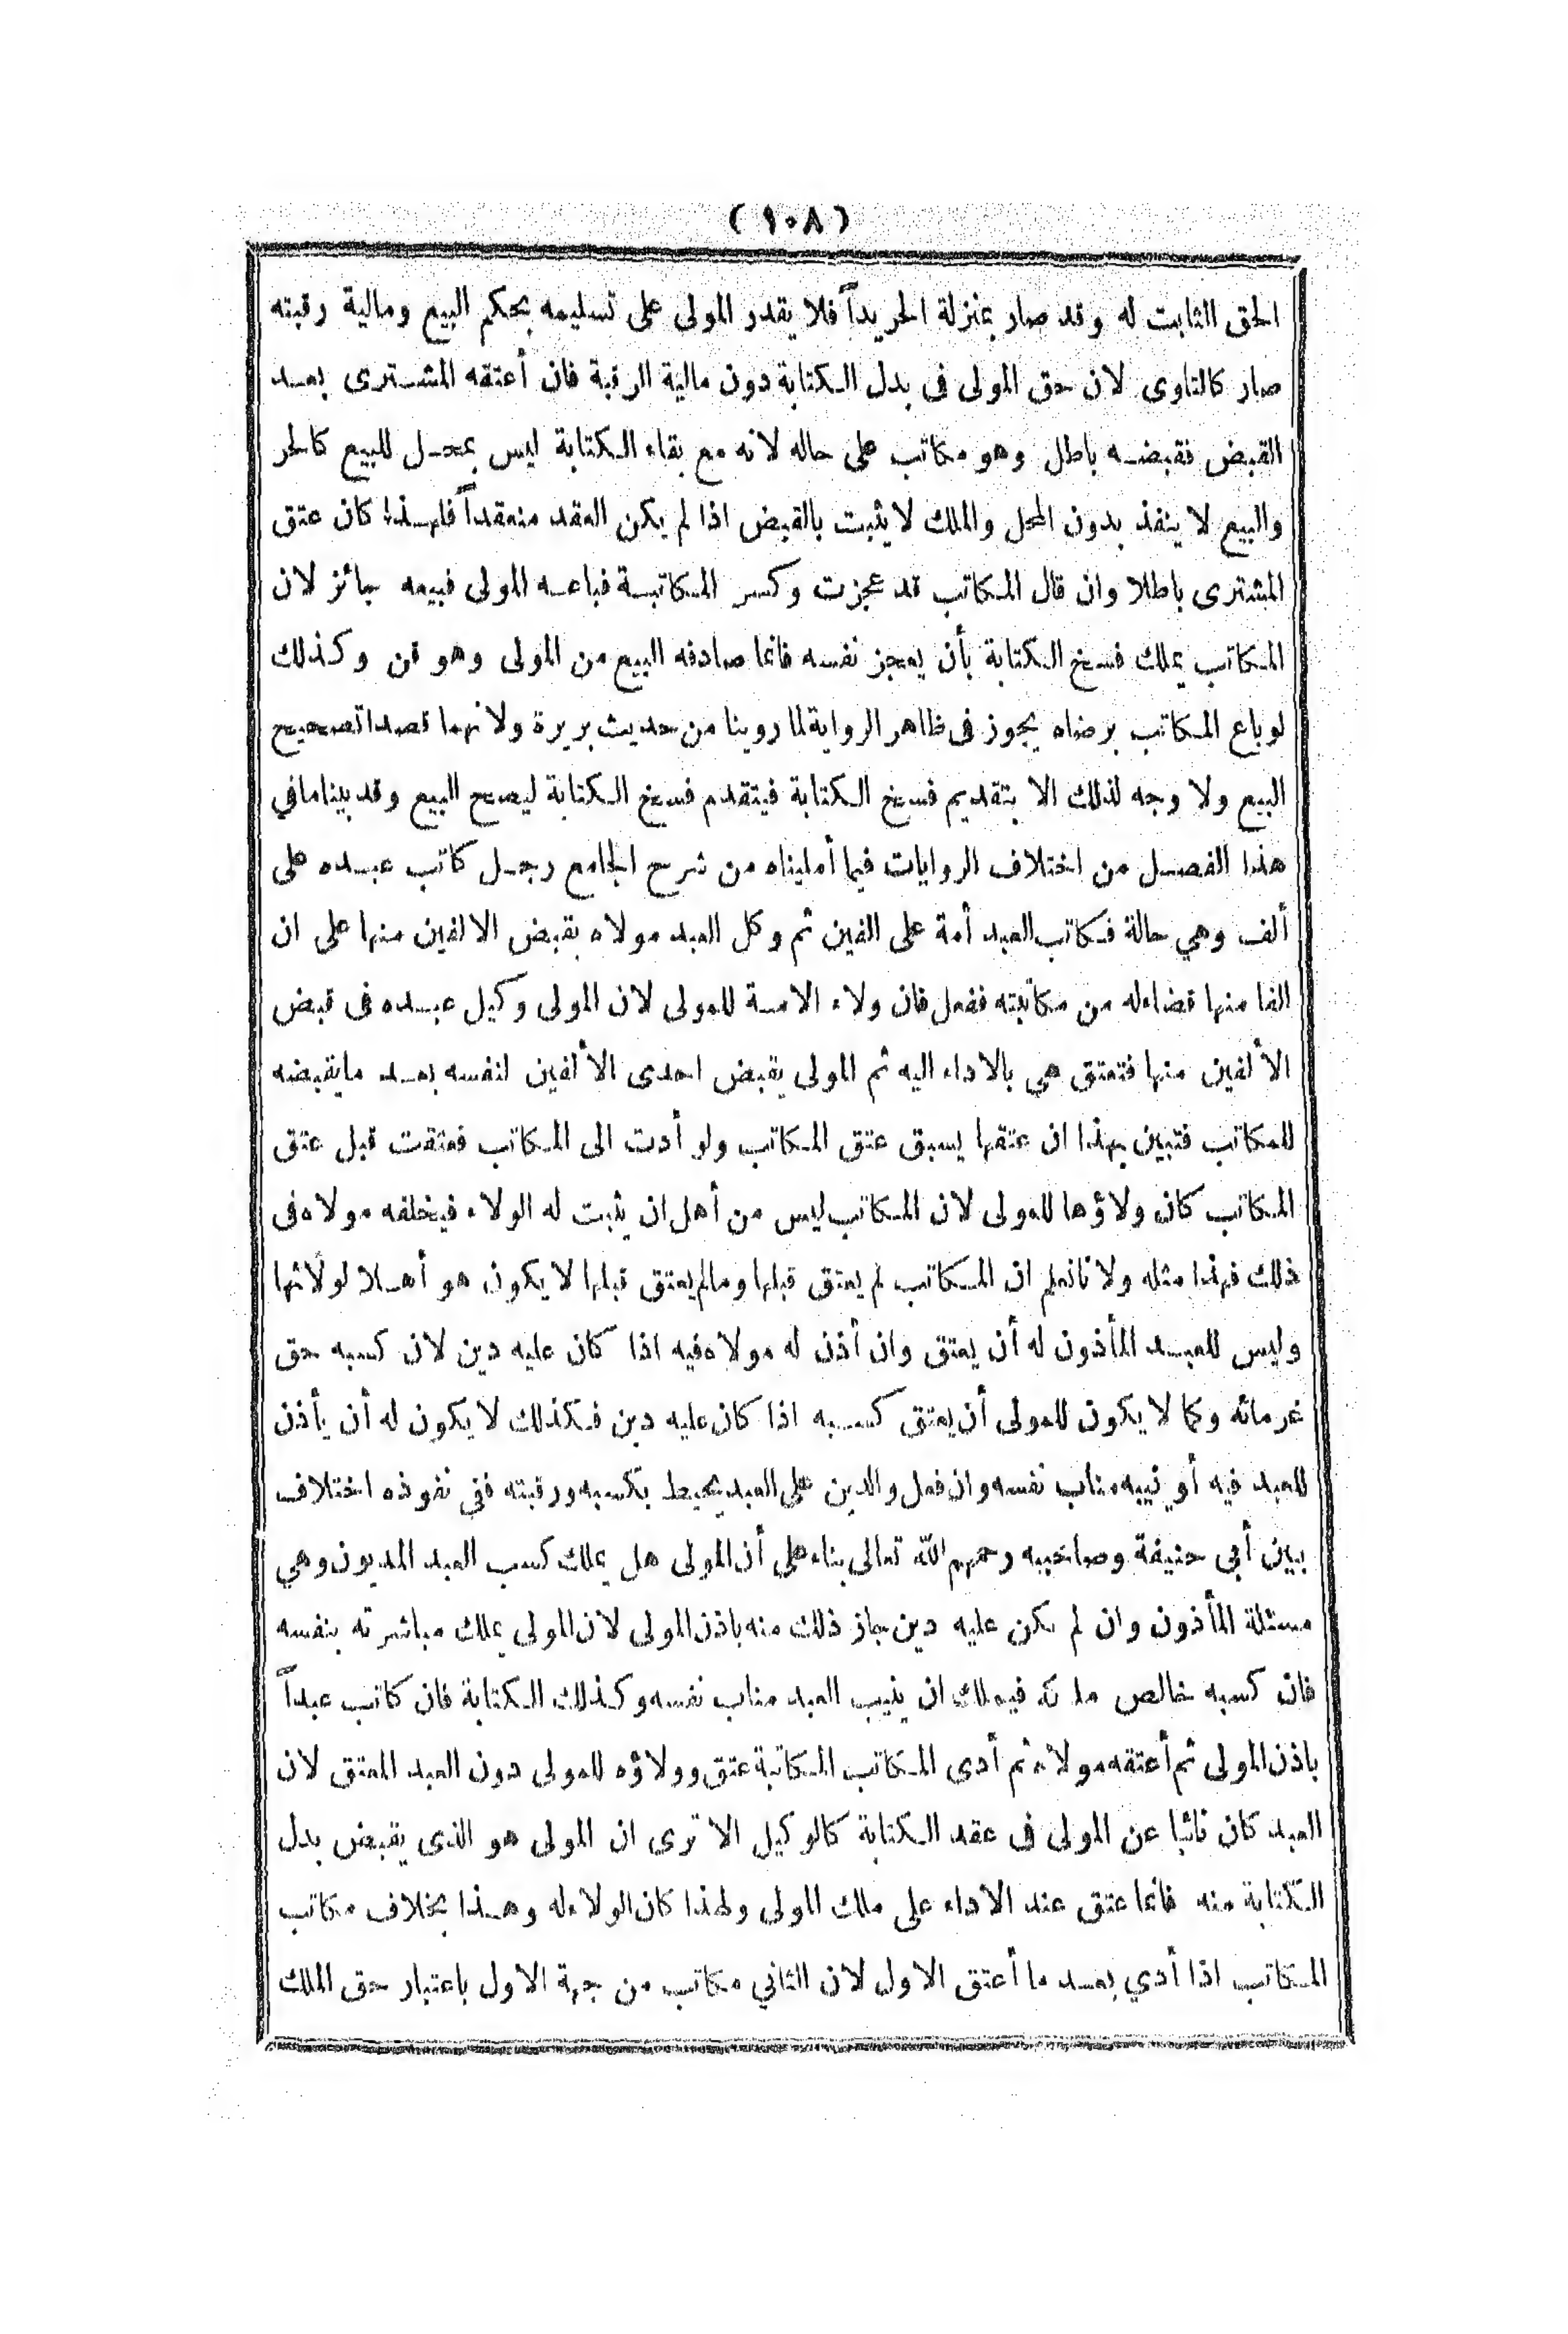 (١٠٨)
الحق الثابت له وقد صار بمنزلة الحر يداً فلا يقدر المولى على تسليمه بحكم البيع ومالية رقبته
صار كالتاوى لان حق المولى فى بدل الكتابة دون مالية الرقبة فان أعتقه المشترى بعد
القبض فقبضه باطل وهو مكاتب على حاله لانه مع بقاء الكتابة ليس بمحل للبيع كالحر
والبيع لا ينفذ بدون المحل والملك لا يثبت بالقبض اذا لم يكن العقد منعقداً فلهذا كان عتق
المشترى باطلا وان قال المكاتب قد عجزت وكسر المكاتبة فباعه المولى فبيعه جائز لان
المكاتب يملك فسخ الكتابة بأن يعجز نفسه فانما صادفه البيع من المولى وهو قن وكذلك
لو باع المكاتب برضاه يجوز فى ظاهر الرواية لما روينا من حديث بريرة ولانهما قصدا تصحيح
البيع ولا وجه لذلك الا بتقديم فسخ الكتابة فيتقدم فسخ الكتابة ليصح البيع وقد بينا مافي
هذا الفصل من اختلاف الروايات فيما أمليناه من شرح الجامع رجل كاتب عبده على
ألف وهي حالة فكاتب العبد أمة على الفين ثم وكل العبد مولاه بقبض الالفين منها على ان
الفا منها قضاء له من مكاتبته ففعل فان ولاء الامة للمولى لان المولى وكيل عبده فى قبض
الألفين منها فتعتق هي بالاداء اليه ثم المولى يقبض احدى الألفين لنفسه بعد مايقبضه
للمكاتب فتبين بهذا ان عتقها يسبق عتق المكاتب ولو أدت الى المكاتب فعتقت قبل عتق
المكاتب كان ولاؤها للمولى لان المكاتب ليس من أهل ان يثبت له الولاء فيخلفه مولاه فى
ذلك فهذا مثله ولا نانعلم ان المكاتب لم يعتق قبلها ومالم يعتق قبلها لا يكون هو أهلا لولائها
وليس للعبد المأذون له أن يعتق وان أذن له مولاه فيه اذا كان عليه دين لان كسبه حق
غرمائه وكما لا يكون للمولى أن يعتق كسبه اذا كان عليه دين فكذلك لا يكون له أن يأذن
للعبد فيه أو نيبه مناب نفسه وان فعل والدين على العبد يحيط بكسبه ورقبته ففي نفوذه اختلاف
بين أبي حنيفة وصاحبيه رحمهم الله تعالى بناء على أن المولى هل يملك كسب العبد المديون وهي
مسئلة المأذون وان لم يكن عليه دين جاز ذلك منه باذن المولى لان المولى يملك مباشرته بنفسه
فان كسبه خالص ملكه فيملك ان ينيب العبد مناب نفسه وكذلك الكتابة فان كاتب عبداً
باذن المولى ثم أعتقه مولاه ثم أدى المكاتب المكاتبة عتق وولاؤه للمولى دون العبد المعتق لان
العبد كان نائبا عن المولى فى عقد الكتابة كالوكيل الا ترى ان المولى هو الذى يقبض بدل
الكتابة منه فانما عتق عند الاداء على ملك المولى ولهذا كان الولاء له وهذا بخلاف مكاتب
المكاتب اذا أدي بعد ما أعتق الاول لان الثاني مكاتب من جهة الاول باعتبار حق الملك